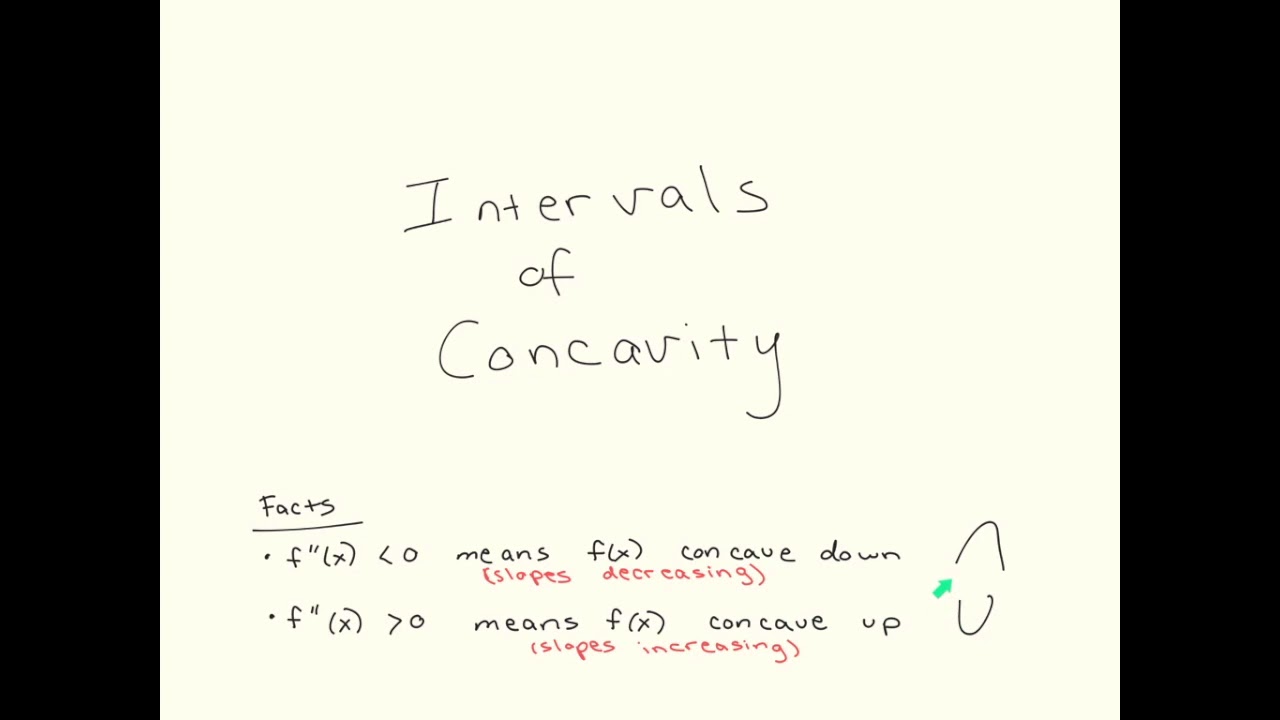 Intervals
of
Concavity
Facts
• f"(x) < 0 means f(x) concave down
(slopes decreasing)
• f"(x) > 0 means f(x) concave up
(slopes increasing)